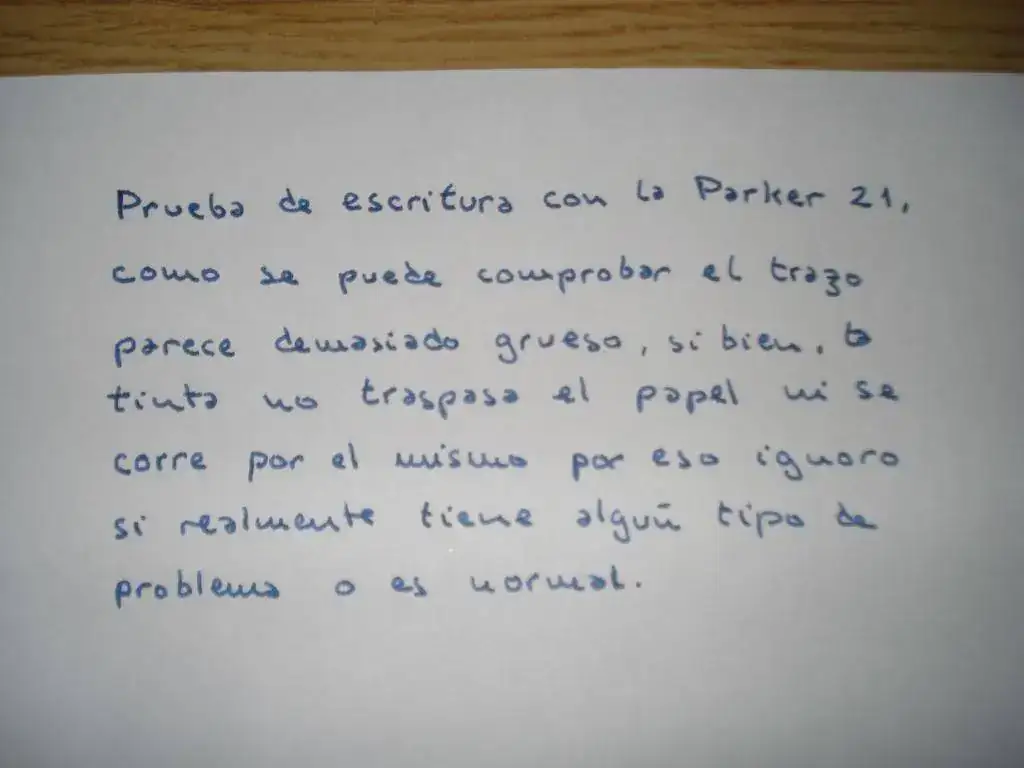 Prueba de escritura con la Parker 21,
como se puede comprobar el trazo
parece demasiado grueso, si bien, la
tinta no traspasa el papel ni se
corre por el mismo por eso ignoro
si realmente tiene algún tipo de
problema o es normal.